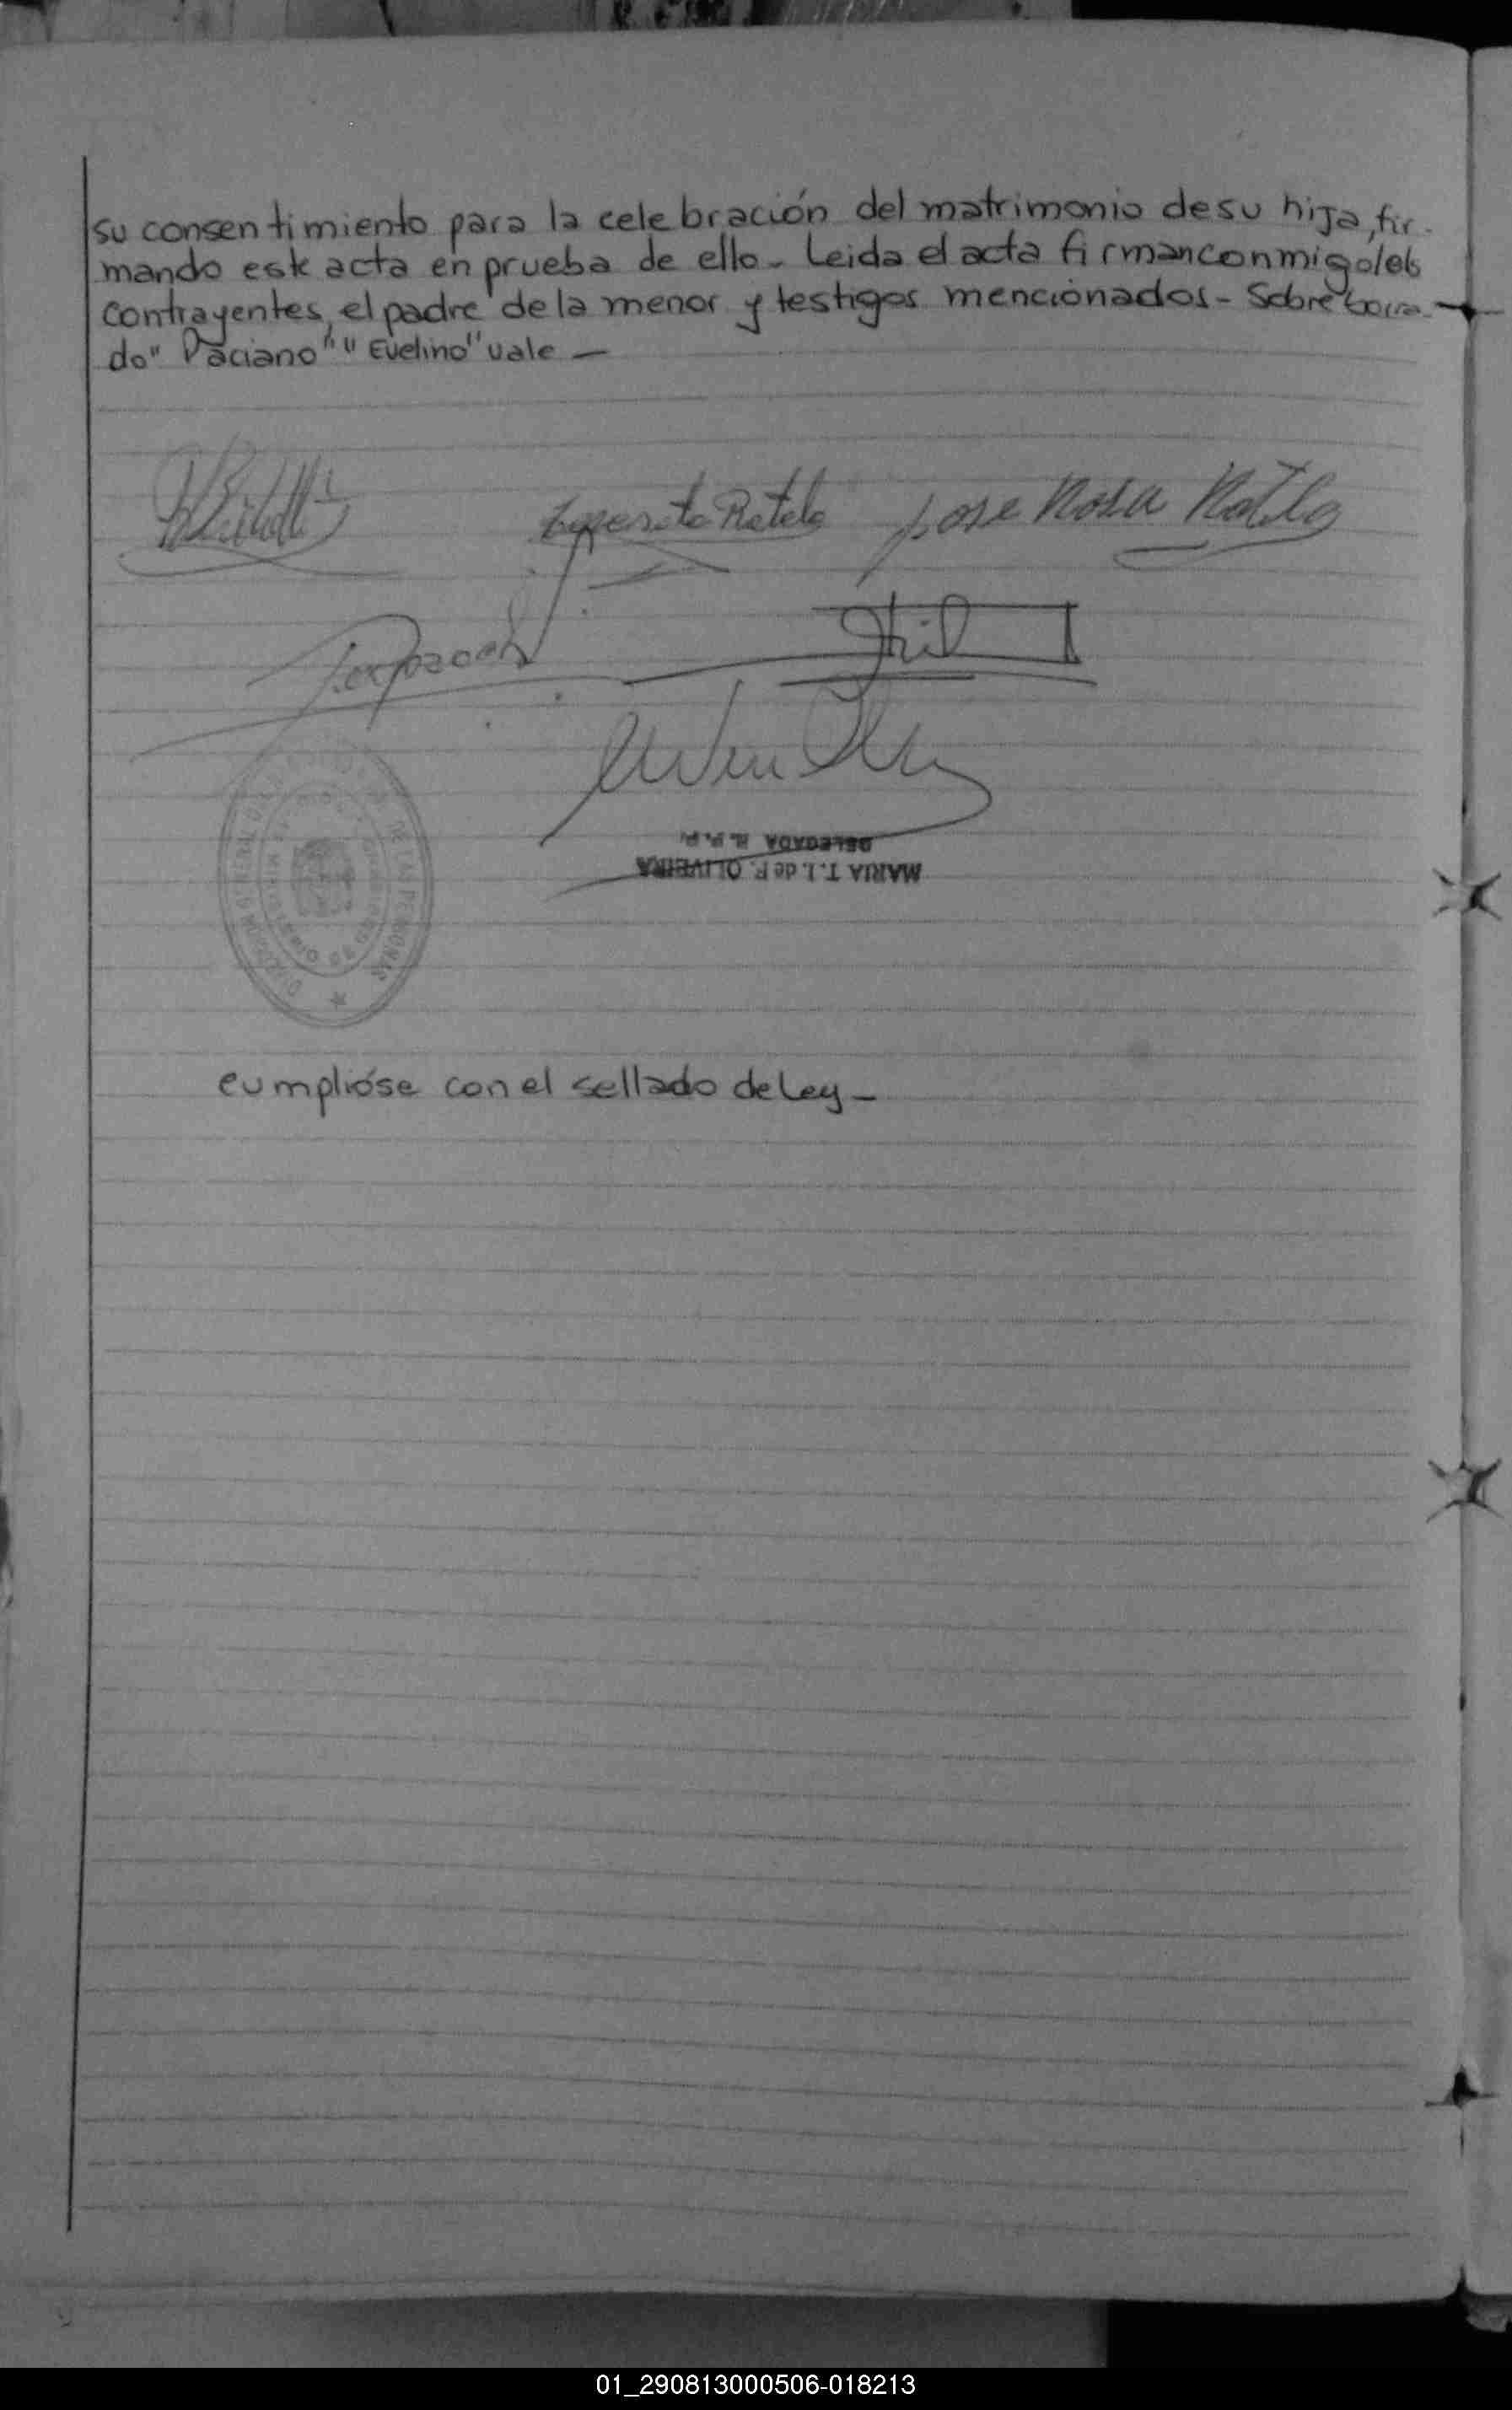 su consentimiento para la celebración del matrimonio de su hija, fir-
mando este acta en prueba de ello- Leida el acta firman conmigo los
contrayentes, el padre de la menor y testigos mencionados - Sobre borra-
do "Paciano" "Evelino" vale -
Rotela Jose Rosa Rotela
DELEGADA R. P. P.
MARIA T. I. de F. OLIVEIRA
DE LAS PERSONAS
cumplióse con el sellado de Ley -
01_290813000506-018213